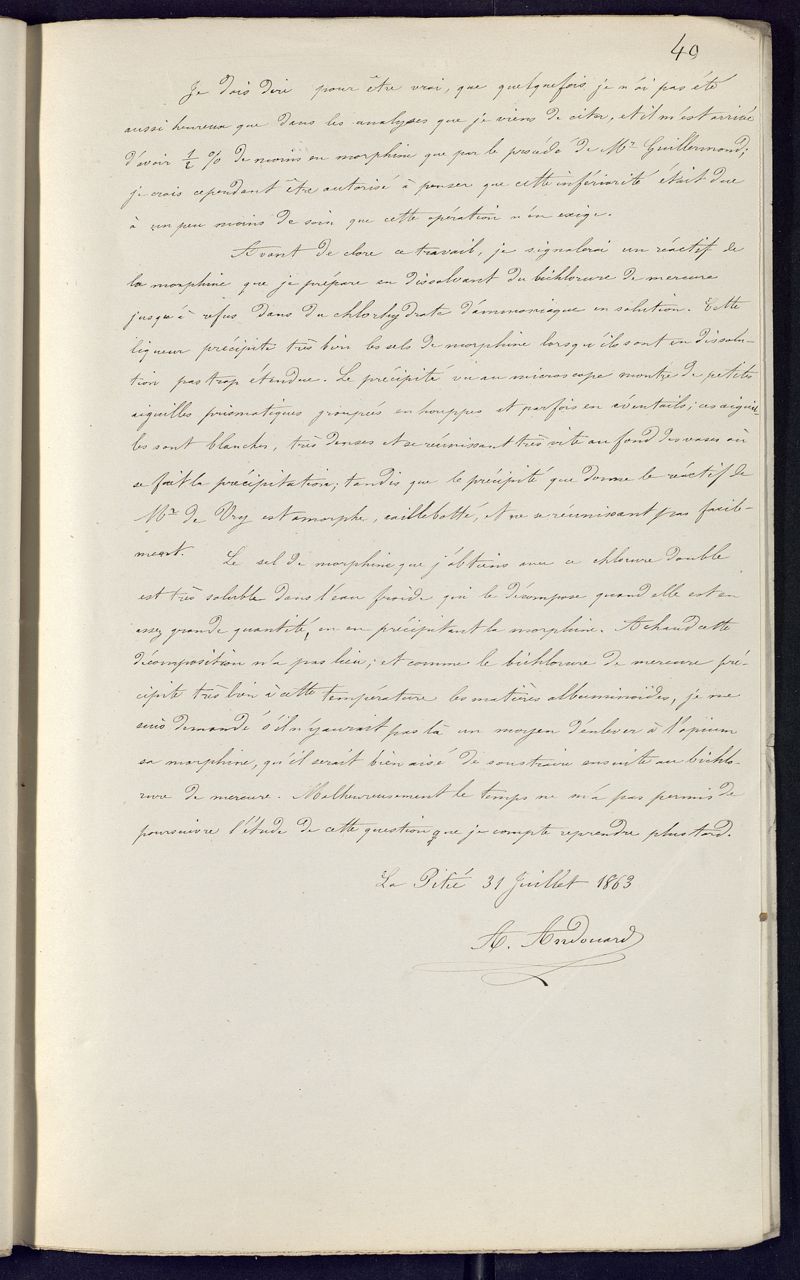 40
Je dois dire pour être vrai, que quelquefois je n'ai pas été
aussi heureux que dans les analyses que je viens de citer, et il m'est arrivé
d'avoir ½ % de moins en morphine que par le procédé de Mr Guillermond;
je crois cependant être autorisé à penser que cette infériorité était due
à un peu moins de soin que cette opération n'en exige.
Avant de clore ce travail, je signalerai un réactif de
la morphine que je prépare en dissolvant du bichlorure de mercure
jusqu'à refus dans du chlorhydrate d'ammoniaque en solution. Cette
liqueur précipite très bien les sels de morphine lorsqu'ils sont en dissolu-
tion pas trop étendue. Le précipité vu au microscope montre de petites
aiguilles prismatiques groupées en houppes et parfois en éventails; ces aiguil-
les sont blanches, très denses et se réunissant très vite au fond des vases où
se fait la précipitation; tandis que le précipité que donne le réactif de
Mr de Vry est amorphe, caillebotté, et ne se réunissant pas facile-
ment. Le sel de morphine que j'obtiens avec ce chlorure double
est très soluble dans l'eau froide qui le décompose quand elle est en
assez grande quantité, en en précipitant la morphine. A chaud cette
décomposition n'a pas lieu; et comme le bichlorure de mercure pré-
cipite très bien à cette température les matières albuminoïdes, je me
suis demandé s'il n'y aurait pas là un moyen d'enlever à l'opium
sa morphine, qu'il serait bien aisé de soustraire ensuite au bichlo-
rure de mercure. Malheureusement le temps ne m'a pas permis de
poursuivre l'étude de cette question que je compte reprendre plus tard.
La Pitié 31 Juillet 1863
A. Andouard